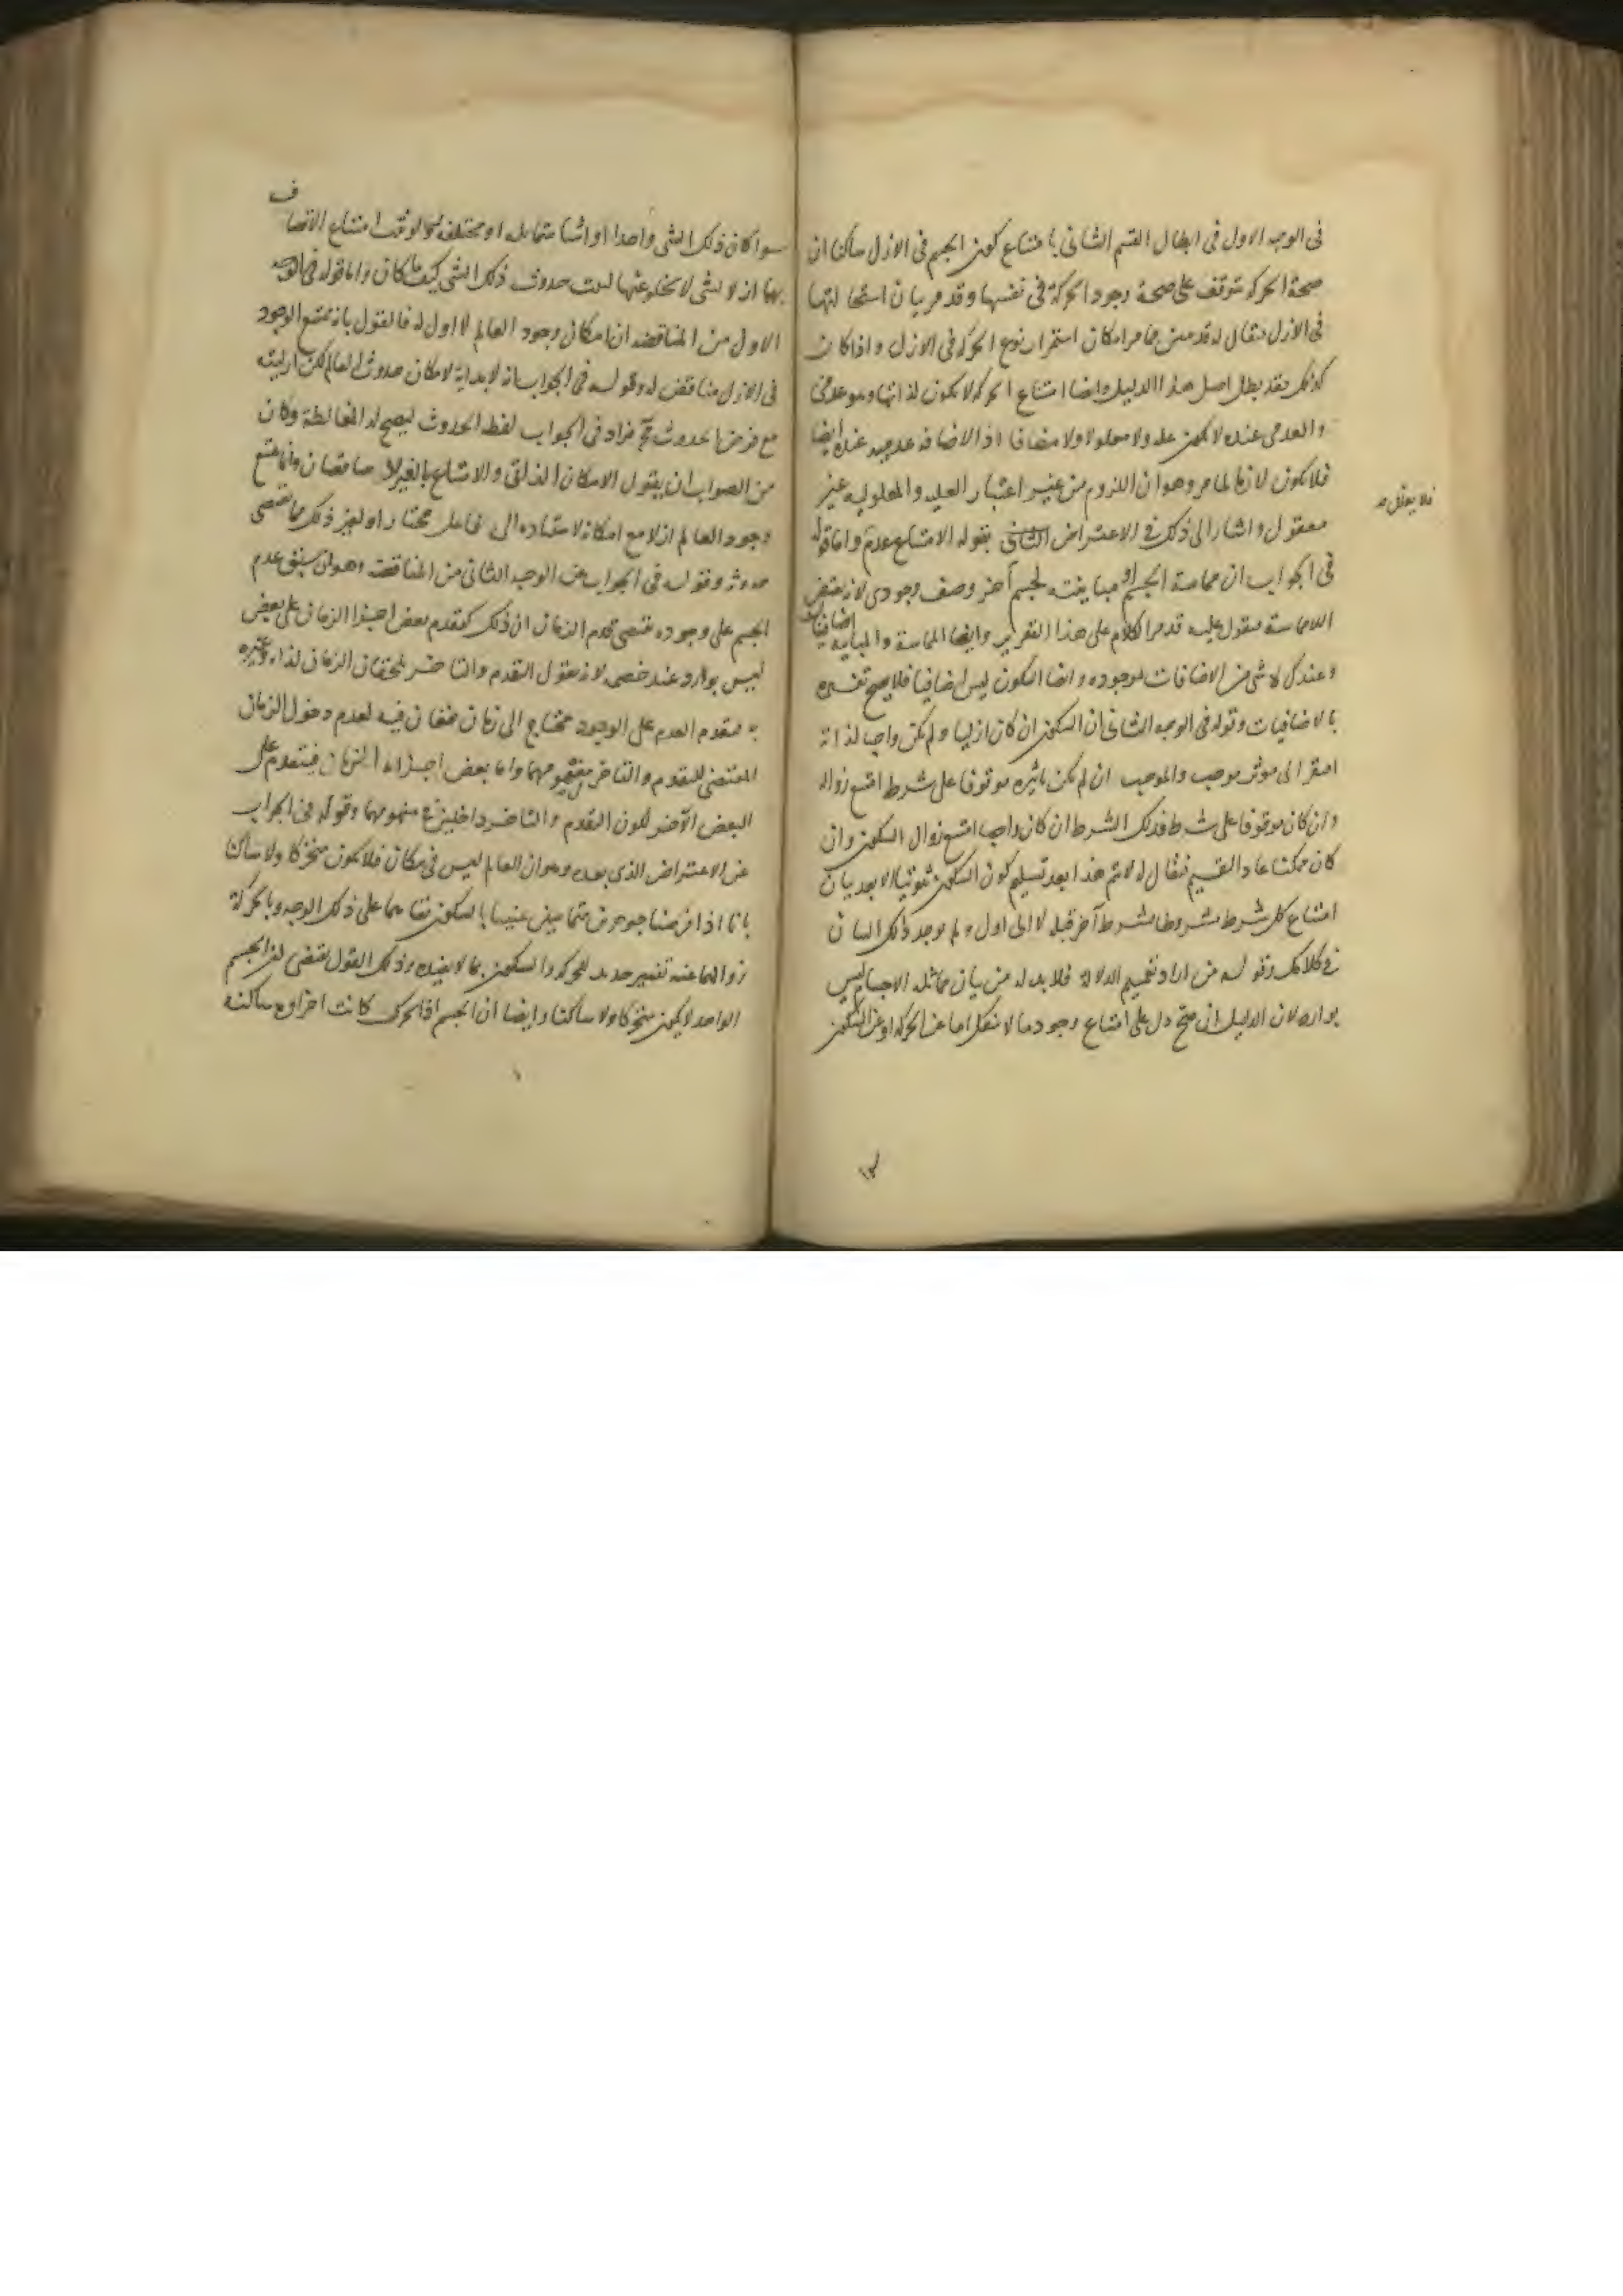 فى الوجه الاول فى ابطال القسم الثانى بامتناع كون الجسم فى الازل ساكنا ان
صحة الحركه تتوقف على صحة وجود الحركة فى نفسها وقد مر بيان استحالتها
فى الازل فيقال له قد مر امكان استمرار نوع الحركه فى الازل واذا كان
كذلك فقد بطل اصل هذا الدليل وايضا امتناع الحركه لا يكون لذاتها وهو عدمى
والعدمى عنده لا يكون عله ولا معلولا ولا مضافا اذ الاضافه عدميه عنده ايضا
فلا يكون لازما لما مر وهو ان اللزوم من غير اعتبار العليه والمعلوليه غير
معقول واشار الى ذلك فى الاعتراض الثانى بقوله الامتناع عدم واما قوله
فى الجواب ان مماسة الجسم او مباينته لجسم آخر وصف وجودى لانه نقيض
اللامماسة فيقول عليه قد مر الكلام على هذا التقرير وايضا المماسة والمباينة اضافيان
وعندك لا شى من الاضافات بموجوده وايضا السكون ليس اضافيا فلا يصح تفسيره
بالاضافيات وقوله فى الوجه الثانى ان السكون ان كان ازليا ولم يكن واجبا لذاته
افتقر الى موثر موجب والموجب ان لم يكن تاثيره موقوفا على شرط امتنع زواله
وان كان موقوفا على شرط فذلك الشرط ان كان واجبا امتنع زوال السكون وان
كان ممكنا عاد التقسيم فيقال له لا يتم هذا بعد تسليم كون السكون ثبوتيا الا بعد بيان
امتناع كل شرط مشروطا بشرط آخر قبله لا الى اول ولم يوجد ذلك البيان
فى كلامك وقوله من اراد تعميم الدلالة فلا بد له من بيان تماثل الاجسام ليس
بوارد لان الدليل ان صح دل على امتناع وجود ما لا ينفك اما عن الحركه او عن السكون
سوا كان ذلك الشى واحدا او اشيا متماثله او مختلفه امتناع الاتصاف
بهما ازلا لشى لا يخلو عنهما حدوث ذلك الشى كيف ما كان واما قوله فى الوجه
الاول من المناقضه ان امكان وجود العالم لا اول له فالقول بانه ممتنع الوجود
فى الازل مناقض له وقوله فى الجواب انه لا بداية لامكان حدوث العالم لكن ازليته
مع فرض الحدوث فزاد فى الجواب لفظ الحدوث ليصح له المغالطة وكان
من الصواب ان يقول الامكان الذاتى والامتناع بالغير لا يتناقضان وانما يمتنع
وجود العالم ازلا مع امكانه لاستناده الى فاعل مختار او لغير ذلك مما يقتضى
حدوثه وقوله فى الجواب عن الوجه الثانى من المناقضة وهو ان سبق عدم
الجسم على وجوده يقتضى قدم الزمان ان ذلك كتقدم بعض اجزا الزمان على بعض
ليس بوارد عند خصمه لانه يقول التقدم والتاخر يلحقان الزمان لذاته وغيره
به فتقدم العدم على الوجود محتاج الى زمان يقعان فيه لعدم دخول الزمان
المقتضى للتقدم والتاخر فى مفهومهما واما بعض اجزاء الزمان فيتقدم على
البعض الآخر لكون التقدم والتاخر داخلين فى مفهومهما وقوله فى الجواب
عن الاعتراض الذى بعده وهو ان العالم ليس فى مكان فلا يكون متحركا ولا ساكنا
بانا اذا فرضنا جوهرين متماسين عنينا بالسكون بقاهما على ذلك الوجه وبالحركة
زوالهما عنه تفسير جديد للحركه والسكون بما لا يفيده وذلك القول يقتضى ان الجسم
الواحد لا يكون متحركا ولا ساكنا وايضا ان الجسم اذا تحرك كانت اجزاوه ساكنة